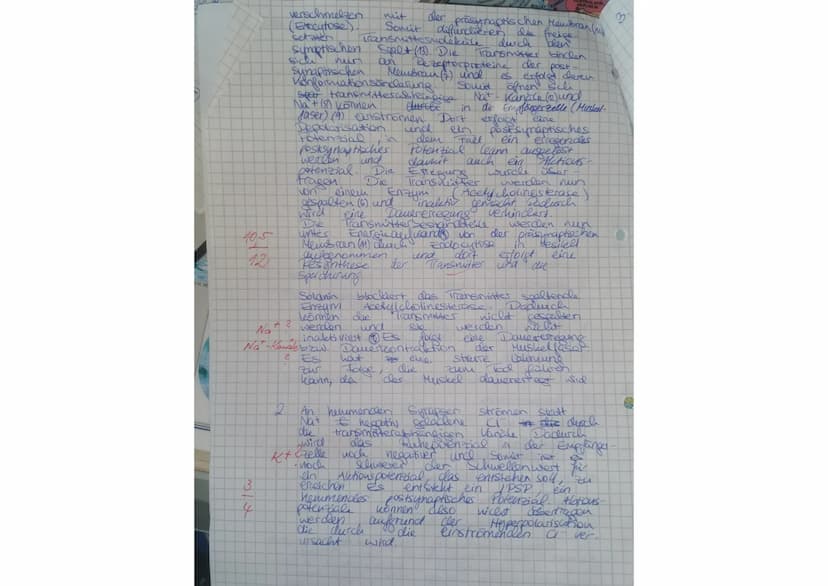 verschmelzen mit der präsynaptischen Membran (11)
(Exocytose). Somit diffundieren die freige-
setzten Transmittermoleküle durch den
synaptischen Spalt (13). Die Transmitter binden
sich nun an Rezeptorproteine der post-
synaptischen Membran (7) und es erfolgt deren
Konformationsänderung. Somit öffnen sich
transmitterabhängige Na+-Kanäle (2) und
Na+ (8) können in die Empfängerzelle (Muskel-
faser) (9) einströmen. Dort erfolgt eine
Depolarisation und ein postsynaptisches
Potenzial, in dem Fall ein erregendes
postsynaptischer Potenzial kann ausgelöst
werden und damit auch ein Aktions-
potenzial. Die Erregung wurde über-
tragen. Die Transmitter werden nun
von einem Enzym (Acetylcholinesterase)
gespalten (6) und inaktiv gemacht. Dadurch
wird eine Dauererregung verhindert.
Die Transmitterbestandteile werden nun
unter Energieaufwand von der präsynaptischen
Membran (11) durch Endocytose in Vesikel
aufgenommen und dort erfolgt eine
Resynthese der Transmitter und die
Speicherung
10,5
12
Solanin blockiert das Transmitter spaltende
Enzym Acetylcholinesterase. Dadurch
können die Transmitter nicht gespalten
werden und sie werden nicht
inaktiviert. Es folgt eine Dauererregung
bzw. Dauerkontraktion der Muskelfaser
Es hat eine starre Lähmung
zur Folge, die zum Tod führen
kann, da der Muskel dauererregt wird
Na+ ?
Na+-Kanäle
?
2. An hemmenden Synapsen strömen statt
Na+ negativ geladene Cl- durch
die transmitterabhängigen Kanäle. Dadurch
wird das Ruhepotenzial in der Empfänger-
zelle noch negativer und somit ist es
noch schwerer den Schwellenwert für
ein Aktionspotenzial, das entstehen soll, zu
erreichen. Es entsteht ein IPSP, ein
hemmendes postsynaptisches Potenzial. Aktions-
potenziale können also nicht übertragen
werden, aufgrund der Hyperpolarisation,
die durch die einströmenden Cl- ver-
ursacht wird.
K+
3
4